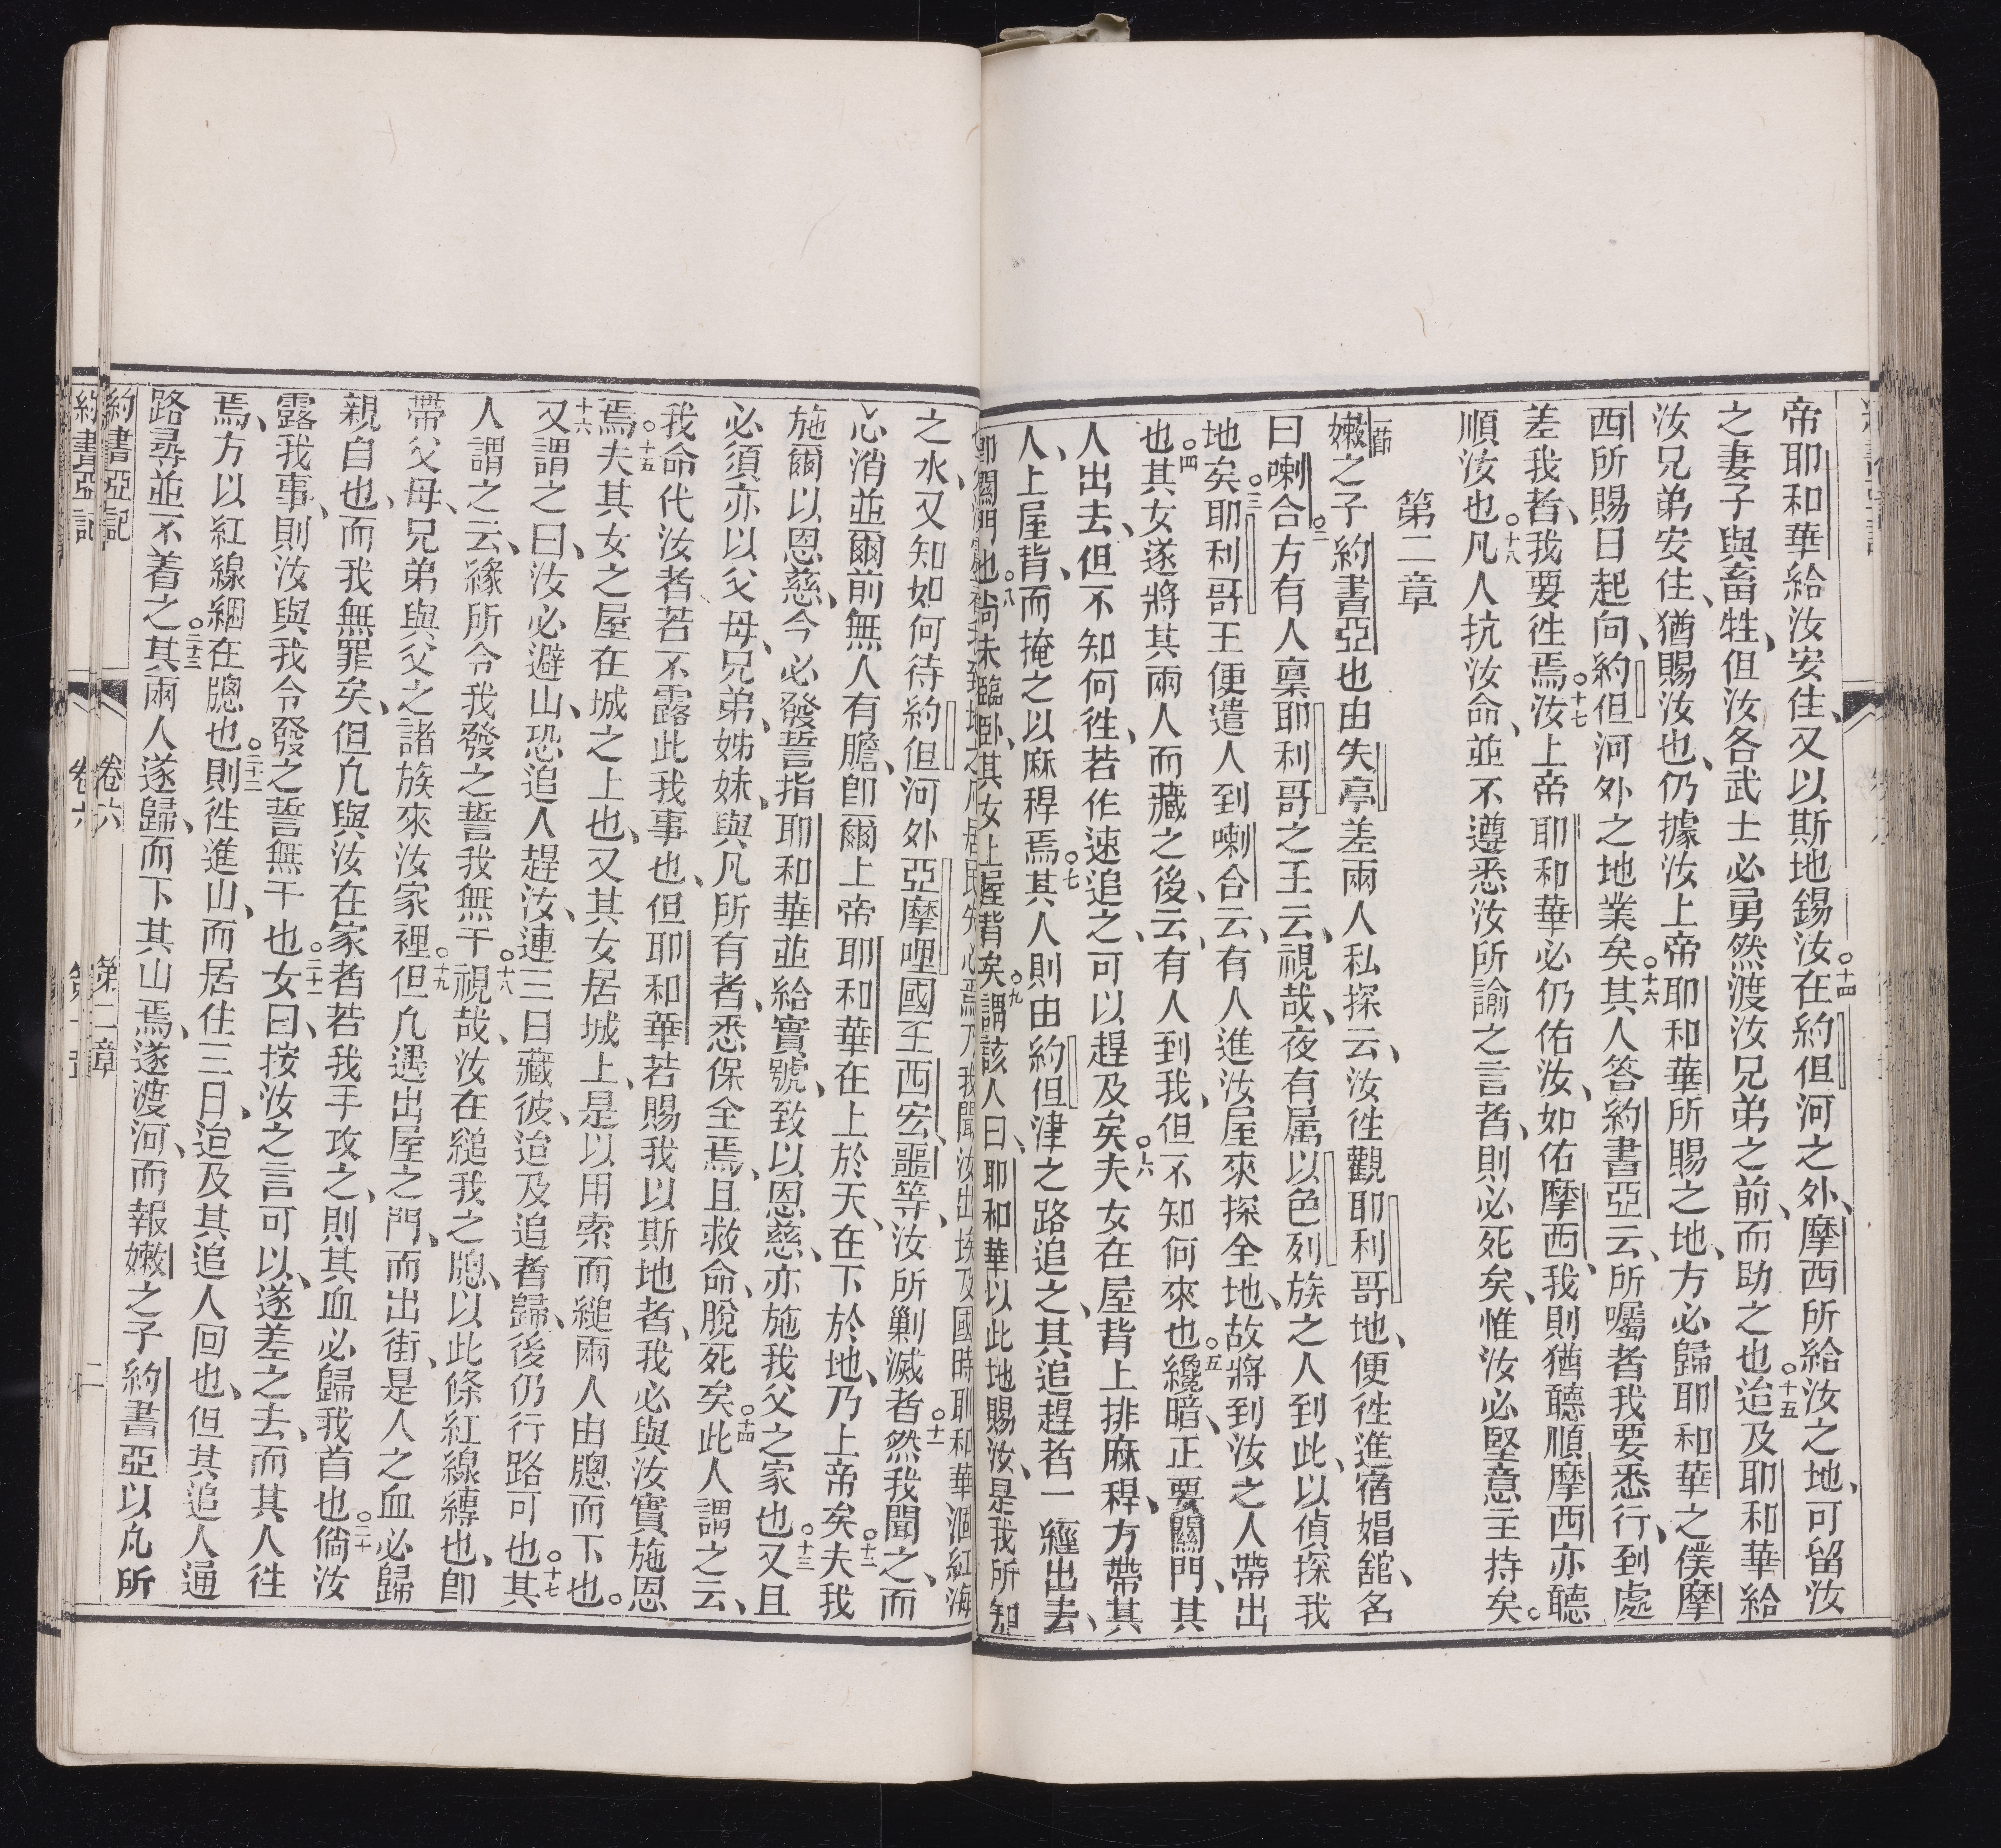 帝耶和華給汝安住、又以斯地錫汝○十四在約但河之外、摩西所給汝之地、可留汝
之妻子與畜牲、但汝各武士必勇然渡汝兄弟之前、而助之也○十五迨及耶和華給
汝兄弟安住、猶賜汝也、仍據汝上帝耶和華所賜之地、方必歸耶和華之僕摩
西所賜日起向、約但河外之地業矣○十六其人答約書亞云、所囑者我要悉行、到處
差我者、我要徃焉○十七汝上帝耶和華必仍佑汝、如佑摩西、我則猶聽順摩西亦聽
順汝也○十八凡人抗汝命、並不遵悉汝所諭之言者、則必死矣、惟汝必堅意主持矣。
第二章
一節嫩之子約書亞也由失亭差兩人私探云、汝徃觀耶利哥地、便徃進宿娼舘、名
曰喇合○二方有人稟耶利哥之王云、視哉、夜有属以色列族之人到此、以偵探我
地矣○三耶利哥王便遣人到喇合云、有人進汝屋來探全地、故將到汝之人帶出
也○四其女遂將其兩人而藏之後、云、有人到我、但不知何來也○五纔暗、正要關門、其
人出去、但不知何徃、若作速追之、可以趕及矣○六夫女在屋背上排麻稈、方帶其
人、上屋背、而掩之以麻稈焉○七其人則由約但津之路追之、其追趕者一經出去、
即關門也○八尚未臨卧、其女上屋背矣○九謂該人曰、耶和華以此地賜汝、是我所知
我聞汝出埃及國時耶和華涸紅海
之水、又知如何待約但河外亞摩哩國王西宏、噩等、汝所剿滅者○十一然我聞之、而
心消並爾前無人有膽、即爾上帝耶和華在上於天、在下於地、乃上帝矣○十二夫我
施爾以恩慈、今必發誓指耶和華並給實號、致以恩慈、亦施我父之家也○十三又且
必須亦以父母、兄弟、姊妹、與凡所有者、悉保全焉、且救命、脫死矣○十四此人謂之云、
我命代汝者若不露此我事也、但耶和華若賜我以斯地者、我必與汝實施恩
焉○十五夫其女之屋在城之上也、又其女居城上、是以用索而縋兩人由牕而下也。
十六又謂之曰、汝必避山、恐追人趕汝、連三日藏彼、迨及追者歸、後仍行路可也○十七其
人謂之云、緣所令我發之誓我無干○十八視哉、汝在縋我之牕、以此條紅線縛也、即
帶父母、兄弟與父之諸族來汝家裡○十九但凡遇出屋之門、而出街、是人之血必歸
親自也、而我無罪矣、但凡與汝在家者若我手攻之、則其血必歸我首也○二十倘汝
露我事、則汝與我令發之誓無干也○二十一女曰、按汝之言可以、遂差之去、而其人徃
焉、方以紅線綑在牕也○二十二則徃進山、而居住三日、迨及其追人回也、但其追人通
路尋並不着之○二十三其兩人遂歸、而下其山焉、遂渡河、而報嫩之子約書亞以凡所
約書亞記 卷六 第二章 二
約書亞記 卷六